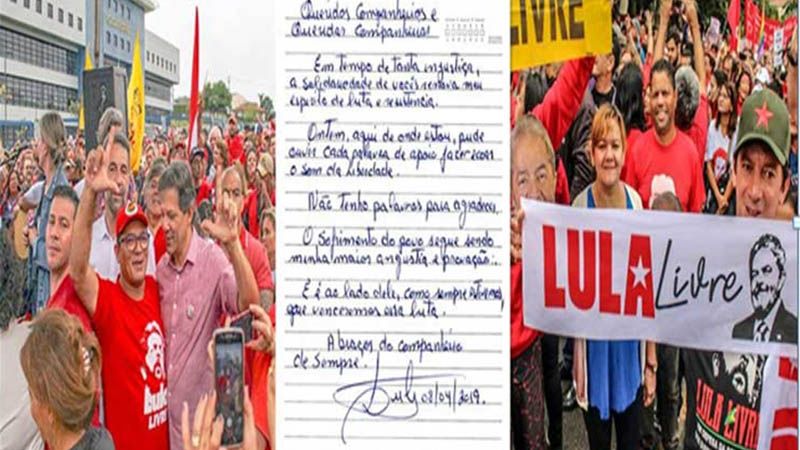 Queridos Companheiros e
Queridas Companheiras
Em tempo de tanta injustiça,
a solidariedade de vocês renova meu
espírito de luta e resistência.
Ontem, aqui de onde estou, pude
ouvir cada palavra de apoio fazer ecoar
o som de liberdade.
Não tenho palavras para agradecer.
O sofrimento do povo segue sendo
minha maior angústia e provação.
E é ao lado dele, como sempre estivemos,
que venceremos essa luta.
Abraços do companheiro
de sempre.
Lula 08/04/2019.
LIVRE
LULA Livre
LULA
LIVRE
Lula
LIVRE